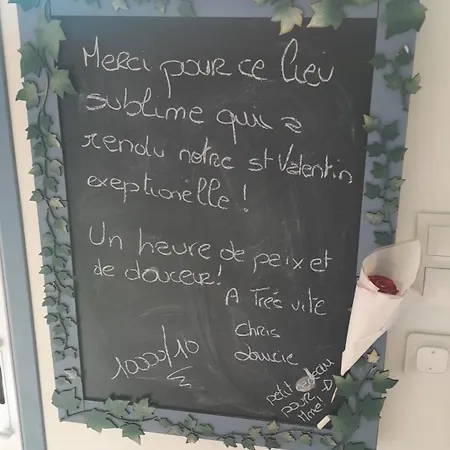 Merci pour ce lieu
sublime qui a
rendu notre st Valentin
exeptionelle !
Un heure de peix et
de douceur!
A Trés vite
Chris
1000/10
petit
pour
Mme!